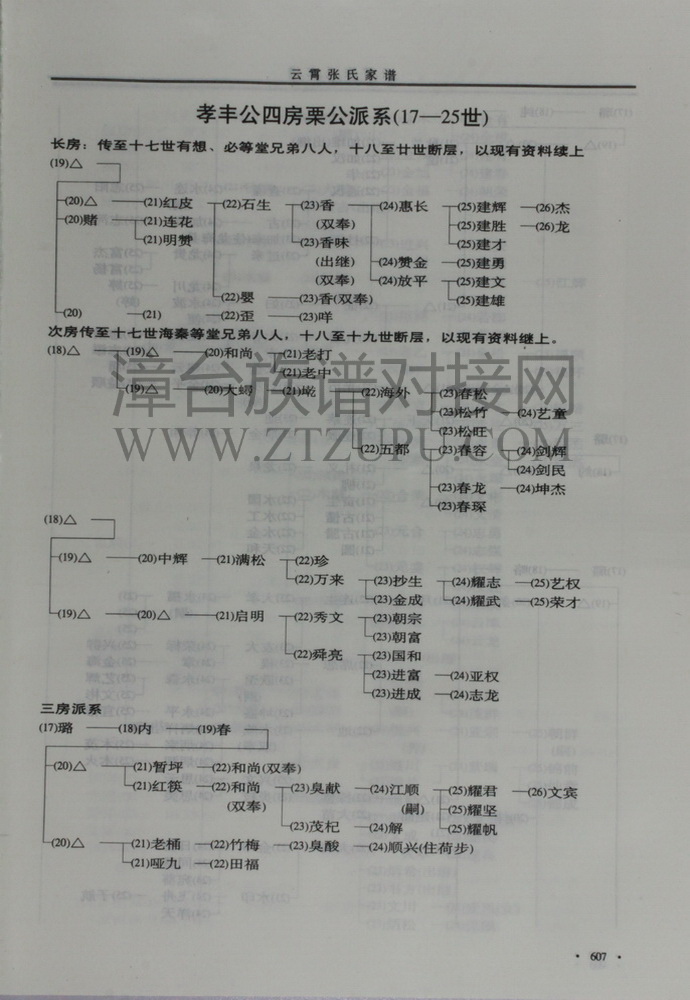 云霄张氏家谱
孝丰公四房栗公派系(17—25世)
长房：传至十七世有想、必等堂兄弟八人，十八至廿世断层，以现有资料续上
(19)△
(20)△ (21)红皮 (22)石生 (23)香 (24)惠长 (25)建辉 (26)杰
(20)赌 (21)连花 (双奉) (25)建胜 (26)龙
(21)明赞 (23)香味 (25)建才
(出继) (24)赞金 (25)建勇
(双奉) (24)放平 (25)建文
(22)婴 (23)香(双奉) (25)建雄
(20) (21) (22)歪 (23)咩
次房传至十七世海秦等堂兄弟八人，十八至十九世断层，以现有资料继上。
(18)△ (19)△ (20)和尚 (21)老打
(21)老中
(19)△ (20)大 (21) (22)海外 (23)春松
(23)松竹 (24)艺童
(23)松旺
(22)五都 (23)春容 (24)剑辉
(24)剑民
(23)春龙 (24)坤杰
(23)春琛
(18)△
(19)△ (20)中辉 (21)满松 (22)珍
(22)万来 (23)抄生 (24)耀志 (25)艺权
(23)金成 (24)耀武 (25)荣才
(19)△ (20)△ (21)启明 (22)秀文 (23)朝宗
(23)朝富
(22)舜亮 (23)国和
(23)进富 (24)亚权
(23)进成 (24)志龙
三房派系
(17)璐 (18)内 (19)春
(20)△ (21)暂坪 (22)和尚(双奉)
(21)红筷 (22)和尚 (23)臭献 (24)江顺 (25)耀君 (26)文宾
(双奉) (嗣) (25)耀坚
(23)茂杞 (24)解 (25)耀帆
(20)△ (21)老桶 (22)竹梅 (23)臭酸 (24)顺兴(住荷步)
(21)哑九 (22)田福
漳台族谱对接网
WWW.ZTZUPU.COM
· 607 ·